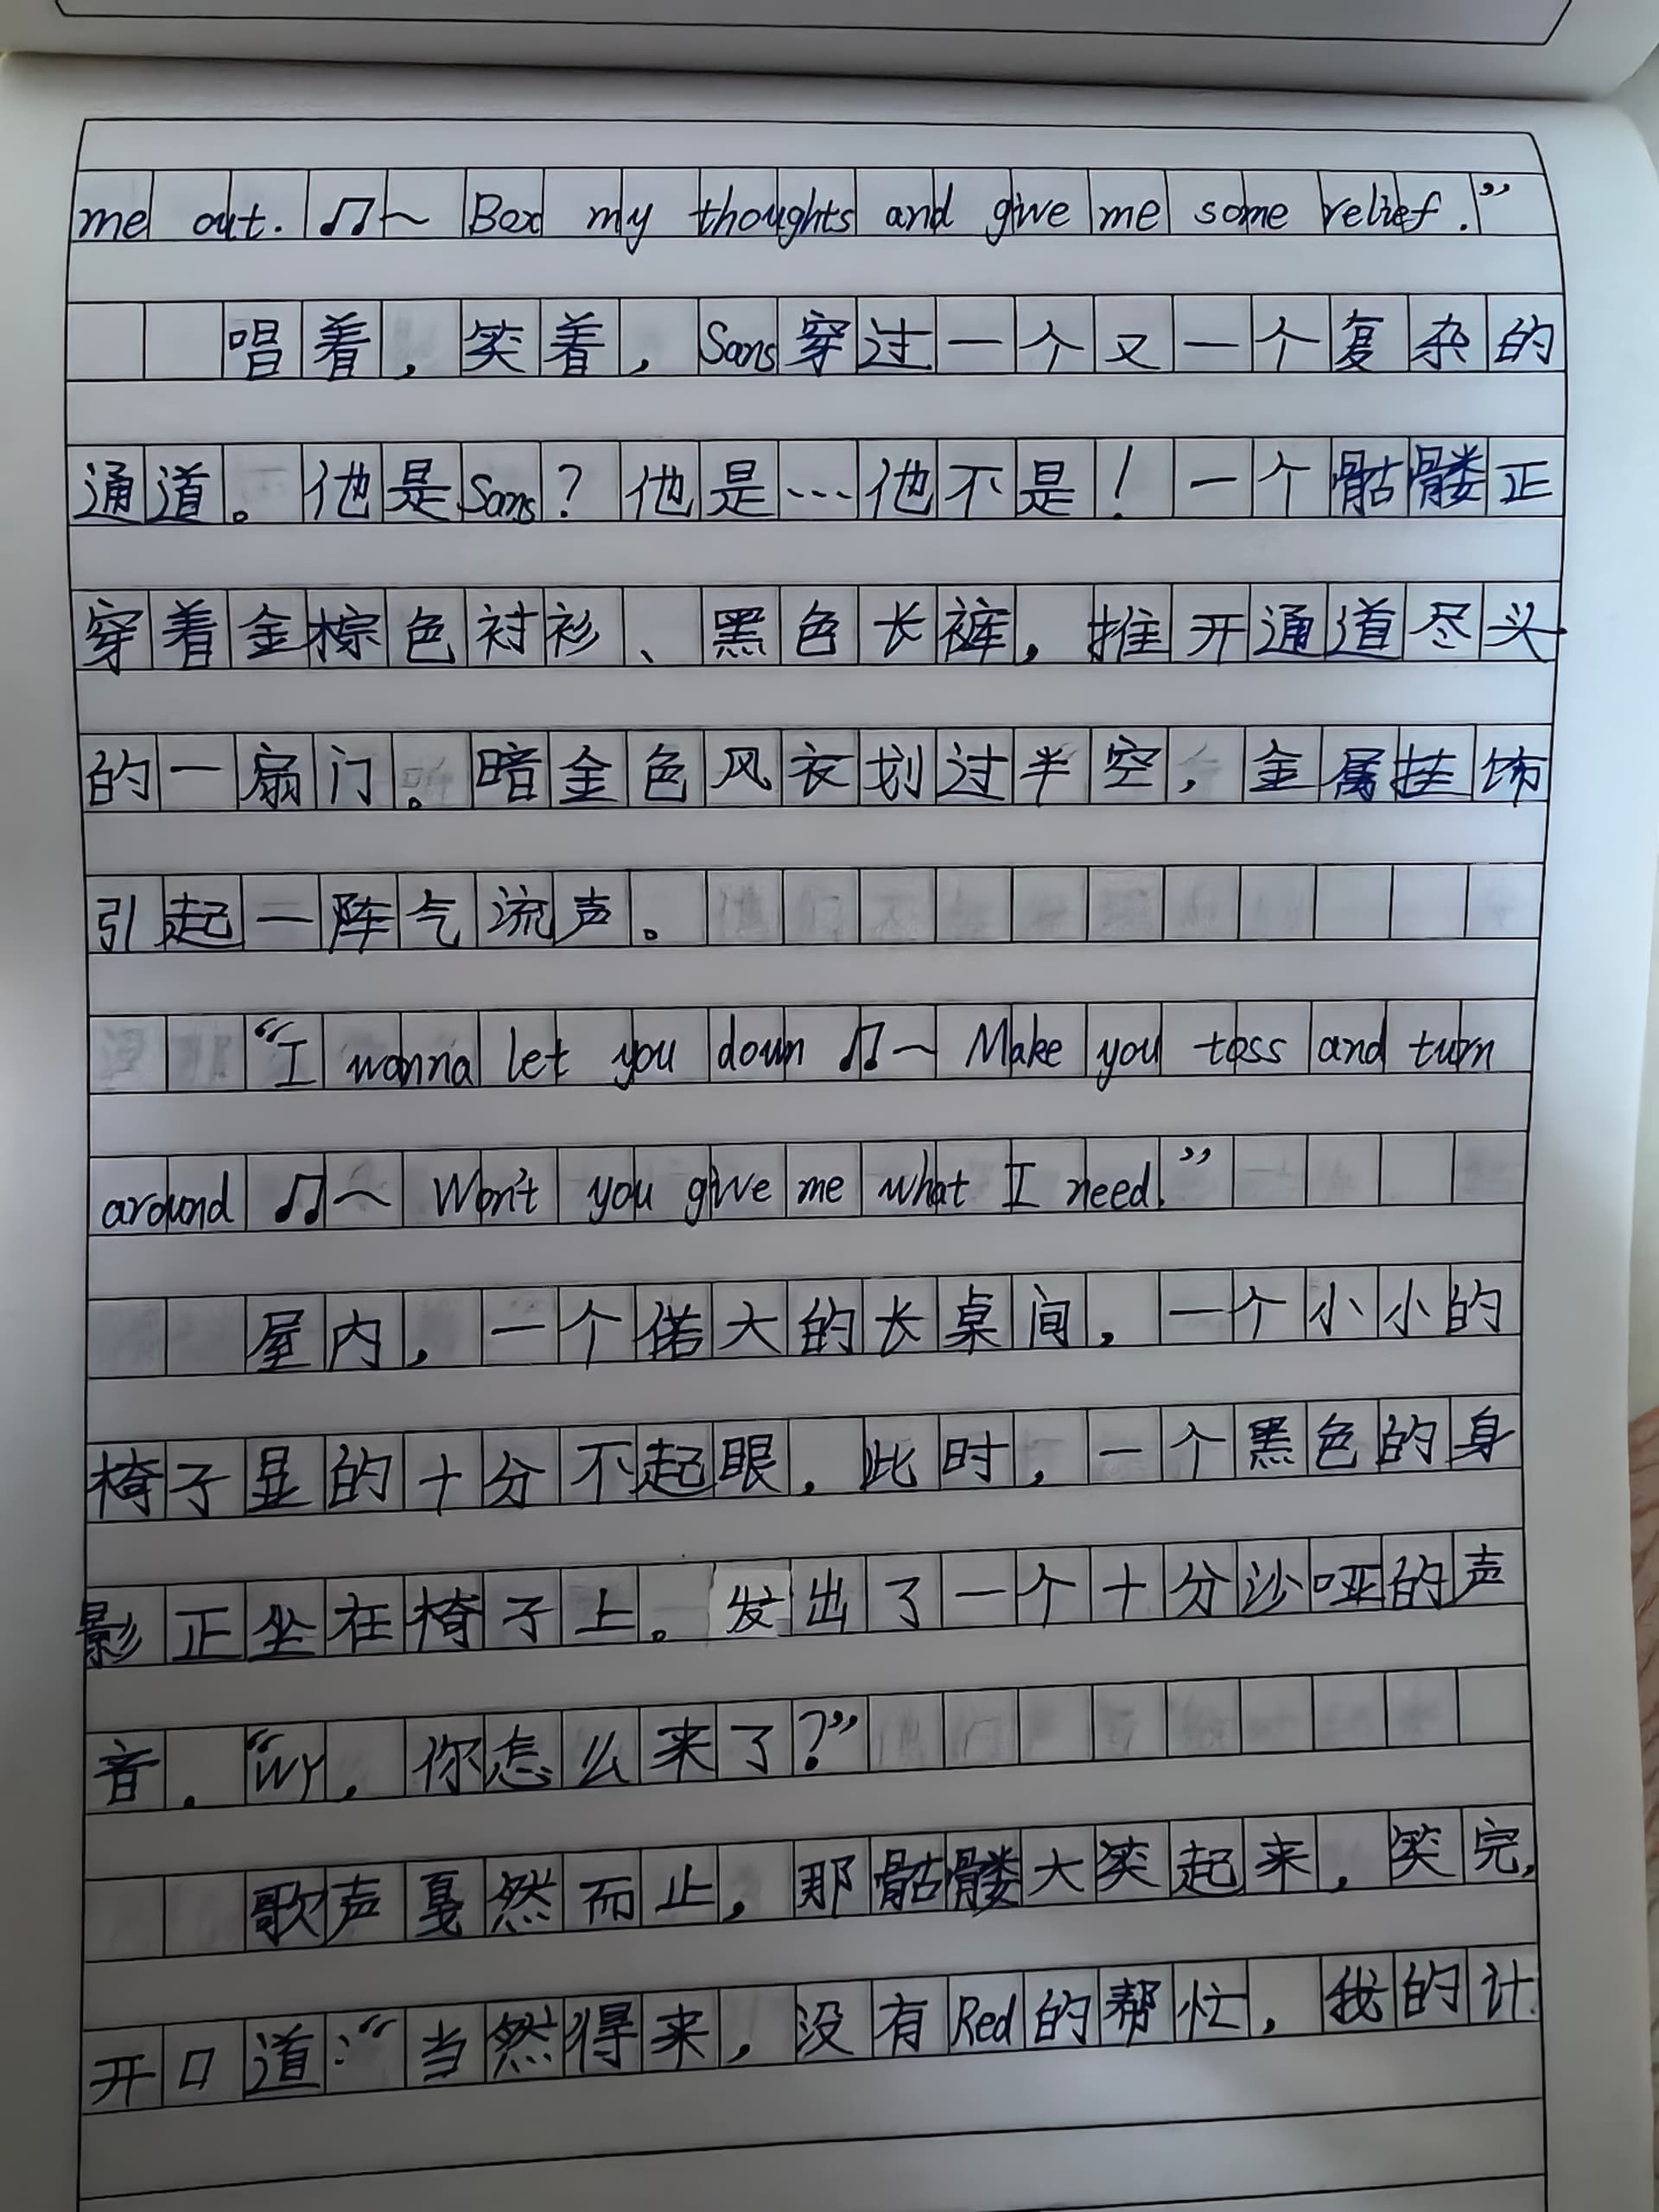 me out. ♫~ Box my thoughts and give me some relief.”
唱着，笑着，Sans穿过一个又一个复杂的
通道。他是Sans？他是…他不是！一个骷髅正
穿着金棕色衬衫、黑色长裤，推开通道尽头
的一扇门。暗金色风衣划过半空，金属挂饰
引起一阵气流声。
“I wanna let you down ♫~ Make you toss and turn
around ♫~ Won't you give me what I need.”
屋内，一个偌大的长桌间，一个小小的
椅子显的十分不起眼，此时，一个黑色的身
影正坐在椅子上。发出了一个十分沙哑的声
音．“WY．你怎么来了？”
歌声戛然而止，那骷髅大笑起来，笑完，
开口道：“当然得来，没有Red的帮忙，我的计